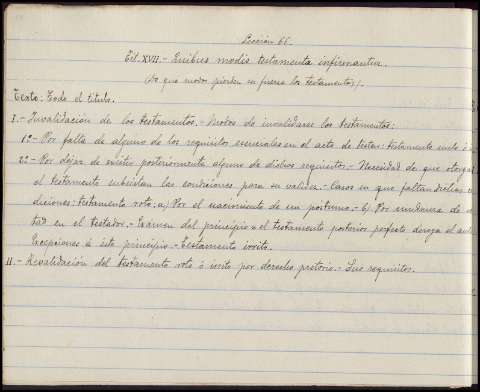 Lección 66.
Tit. XVII.- Quibus modis testamenta infirmantur.
(De que modos pierden su fuerza los testamentos).
Texto: Todo el título.
I.- Invalidación de los testamentos.- Modos de invalidarse los testamentos:
1º- Por falta de alguno de los requisitos esenciales en el acto de testar: testamento nulo
2º- Por dejar de existir posteriormente alguno de dichos requisitos.- Necesidad de que
el testamento subsistan las condiciones para su validez.- Casos en que faltan dichas
diciones: testamento roto: a) Por el nacimiento de un postumo.- b) Por mudanza de
tad en el testador.- Exámen del principio: el testamento posterior perfecto deroga el
Excepciones á este principio.- Testamento irrito.
II.- Revalidación del testamento roto ó irrito por derecho pretorio.- Sus requisitos.